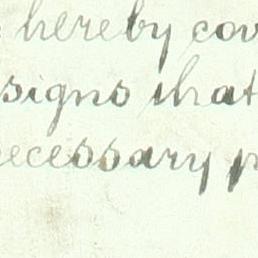 hereby cov
signs that
ecessary p